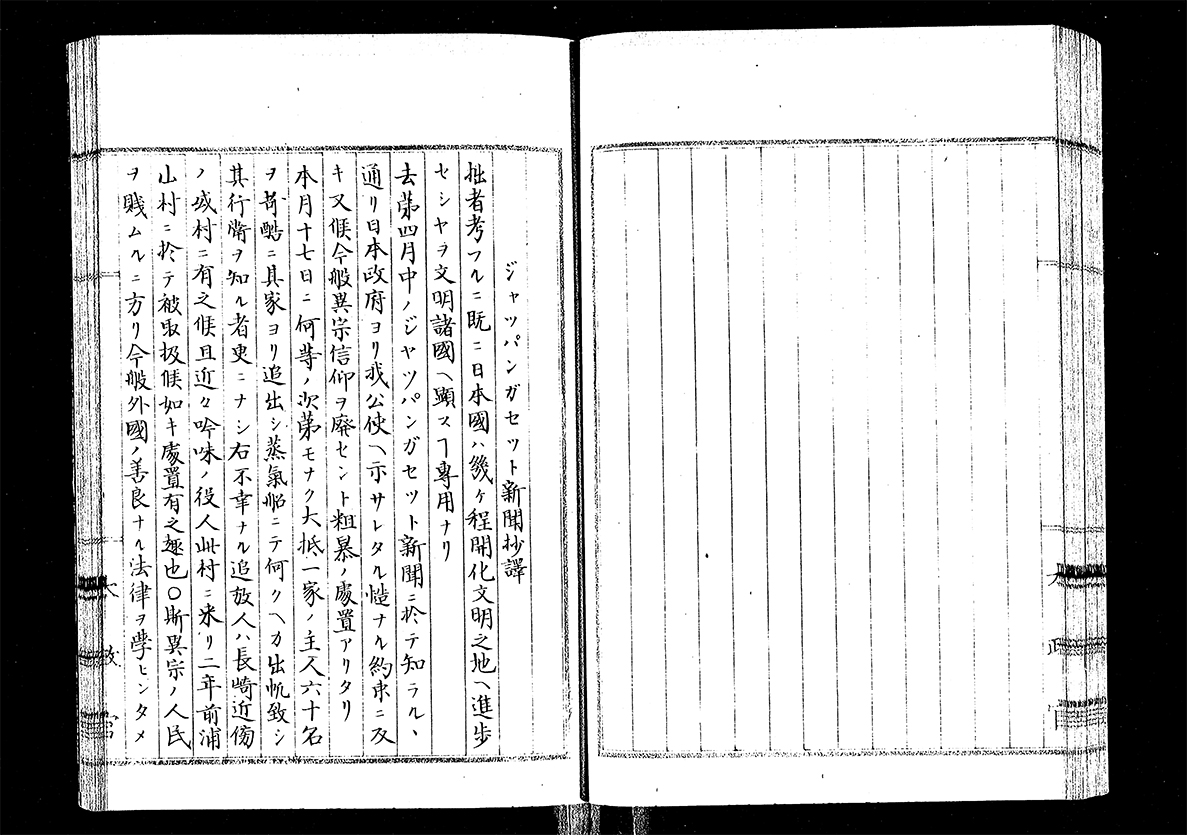 ジャッパンガセット新聞抄譯
拙者考フルニ既ニ日本國ハ幾ケ程開化文明之地ヘ進歩
セシヤヲ文明諸國ヘ顕スヿ專用ナリ
去第四月中ノジャツパンガセット新聞ニ於テ知ラルヽ
通リ日本政府ヨリ我公使ヘ示サレタル慥ナル約束ニ及
キ又候今般異宗信仰ヲ廃セント粗暴ノ處置アリタリ
本月十七日ニ何等ノ次第モナク大抵一家ノ主人六十名
ヲ苛酷ニ其家ヨリ追出シ蒸氣船ニテ何クヘカ出帆致シ
其行衛ヲ知ル者更ニナシ右不幸ナル追放人ハ長崎近傍
ノ城村ニ有之候且近々吟味ノ役人此村ニ来リ二年前浦
山村ニ於テ被取扱候如キ處置有之趣也〇斯異宗ノ人民
ヲ賤ムルニ方リ今般外國ノ善良ナル法律ヲ學ヒンタメ
太政官
太政官